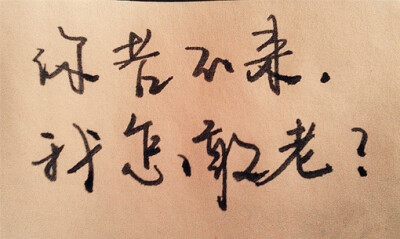 你若不来.
我怎敢老?